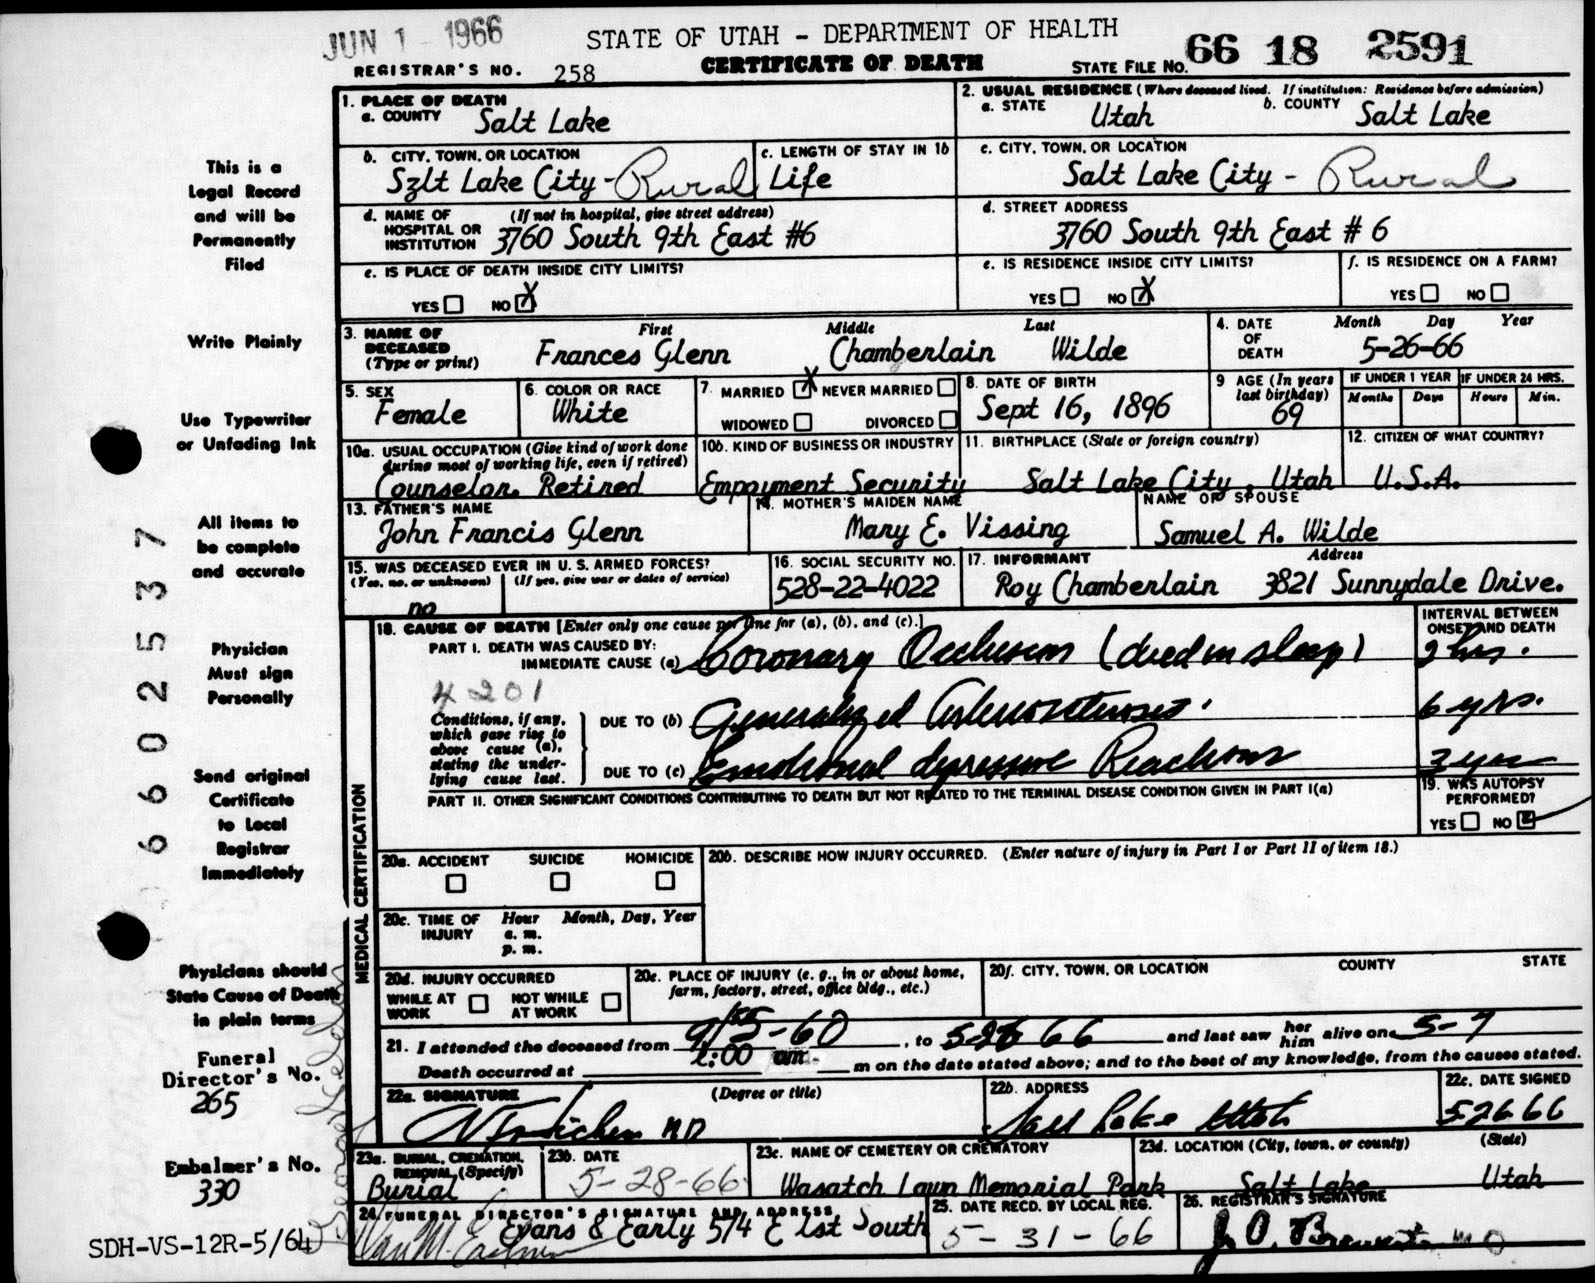 JUN 1 1966
STATE OF UTAH - DEPARTMENT OF HEALTH
CERTIFICATE OF DEATH
REGISTRAR'S NO. 258
STATE FILE NO. 66 18 2591
This is a
Legal Record
and will be
Permanently
Filed
Write Plainly
Use Typewriter
or Unfading Ink
All items to
be complete
and accurate
Physician
Must sign
Personally
Send original
Certificate
to Local
Registrar
Immediately
Physicians should
State Cause of Death
in plain terms
Funeral
Director's No.
265
Embalmer's No.
330
SDH-VS-12R-5/64
66025537
1. PLACE OF DEATH
a. COUNTY Salt Lake
2. USUAL RESIDENCE (Where deceased lived. If institution: Residence before admission)
a. STATE Utah b. COUNTY Salt Lake
b. CITY, TOWN, OR LOCATION
Szlt Lake City - Rural
c. LENGTH OF STAY IN 1b
Life
c. CITY, TOWN, OR LOCATION
Salt Lake City - Rural
d. NAME OF HOSPITAL OR INSTITUTION (If not in hospital, give street address)
3760 South 9th East #6
d. STREET ADDRESS
3760 South 9th East # 6
e. IS PLACE OF DEATH INSIDE CITY LIMITS?
YES NO X
e. IS RESIDENCE INSIDE CITY LIMITS?
YES NO X
f. IS RESIDENCE ON A FARM?
YES NO
3. NAME OF DECEASED (Type or print)
First Middle Last
Frances Glenn Chamberlain Wilde
4. DATE OF DEATH
Month Day Year
5-26-66
5. SEX
Female
6. COLOR OR RACE
White
7. MARRIED X NEVER MARRIED
WIDOWED DIVORCED
8. DATE OF BIRTH
Sept 16, 1896
9 AGE (In years last birthday)
69
IF UNDER 1 YEAR
Months Days
IF UNDER 24 HRS.
Hours Min.
10a. USUAL OCCUPATION (Give kind of work done during most of working life, even if retired)
Counselor. Retired
10b. KIND OF BUSINESS OR INDUSTRY
Empoyment Security
11. BIRTHPLACE (State or foreign country)
Salt Lake City, Utah
12. CITIZEN OF WHAT COUNTRY?
U.S.A.
13. FATHER'S NAME
John Francis Glenn
14. MOTHER'S MAIDEN NAME
Mary E. Vissing
NAME OF SPOUSE
Samuel A. Wilde
15. WAS DECEASED EVER IN U. S. ARMED FORCES?
(Yes, no, or unknown) (If yes, give war or dates of service)
no
16. SOCIAL SECURITY NO.
528-22-4022
17. INFORMANT Address
Roy Chamberlain 3821 Sunnydale Drive.
MEDICAL CERTIFICATION
18. CAUSE OF DEATH [Enter only one cause per line for (a), (b), and (c).]
INTERVAL BETWEEN ONSET AND DEATH
PART I. DEATH WAS CAUSED BY:
IMMEDIATE CAUSE (a) Coronary Occlusion (died in sleep) 2 hrs.
4201
Conditions, if any, which gave rise to above cause (a), stating the underlying cause last.
DUE TO (b) Generalized Arteriosclerosis. 6 yrs.
DUE TO (c) Emotional depressive Reactions 3 yrs
PART II. OTHER SIGNIFICANT CONDITIONS CONTRIBUTING TO DEATH BUT NOT RELATED TO THE TERMINAL DISEASE CONDITION GIVEN IN PART I(a)
19. WAS AUTOPSY PERFORMED?
YES NO
20a. ACCIDENT SUICIDE HOMICIDE
20b. DESCRIBE HOW INJURY OCCURRED. (Enter nature of injury in Part I or Part II of item 18.)
20c. TIME OF INJURY Hour Month, Day, Year
a. m.
p. m.
20d. INJURY OCCURRED
WHILE AT WORK NOT WHILE AT WORK
20e. PLACE OF INJURY (e. g., in or about home, farm, factory, street, office bldg., etc.)
20f. CITY, TOWN, OR LOCATION COUNTY STATE
21. I attended the deceased from 9/55-60, to 52666 and last saw her him alive on 5-7
Death occurred at 2:00 am m on the date stated above; and to the best of my knowledge, from the causes stated.
22a. SIGNATURE (Degree or title)
MD
22b. ADDRESS
Salt Lake Utah
22c. DATE SIGNED
52666
23a. BURIAL, CREMATION, REMOVAL, (Specify)
Burial
23b. DATE
5-28-66
23c. NAME OF CEMETERY OR CREMATORY
Wasatch Lawn Memorial Park
23d. LOCATION (City, town, or county) (State)
Salt Lake Utah
24. FUNERAL DIRECTOR'S SIGNATURE AND ADDRESS
Evans & Early 574 E 1st South
25. DATE RECD. BY LOCAL REG.
5-31-66
26. REGISTRAR'S SIGNATURE